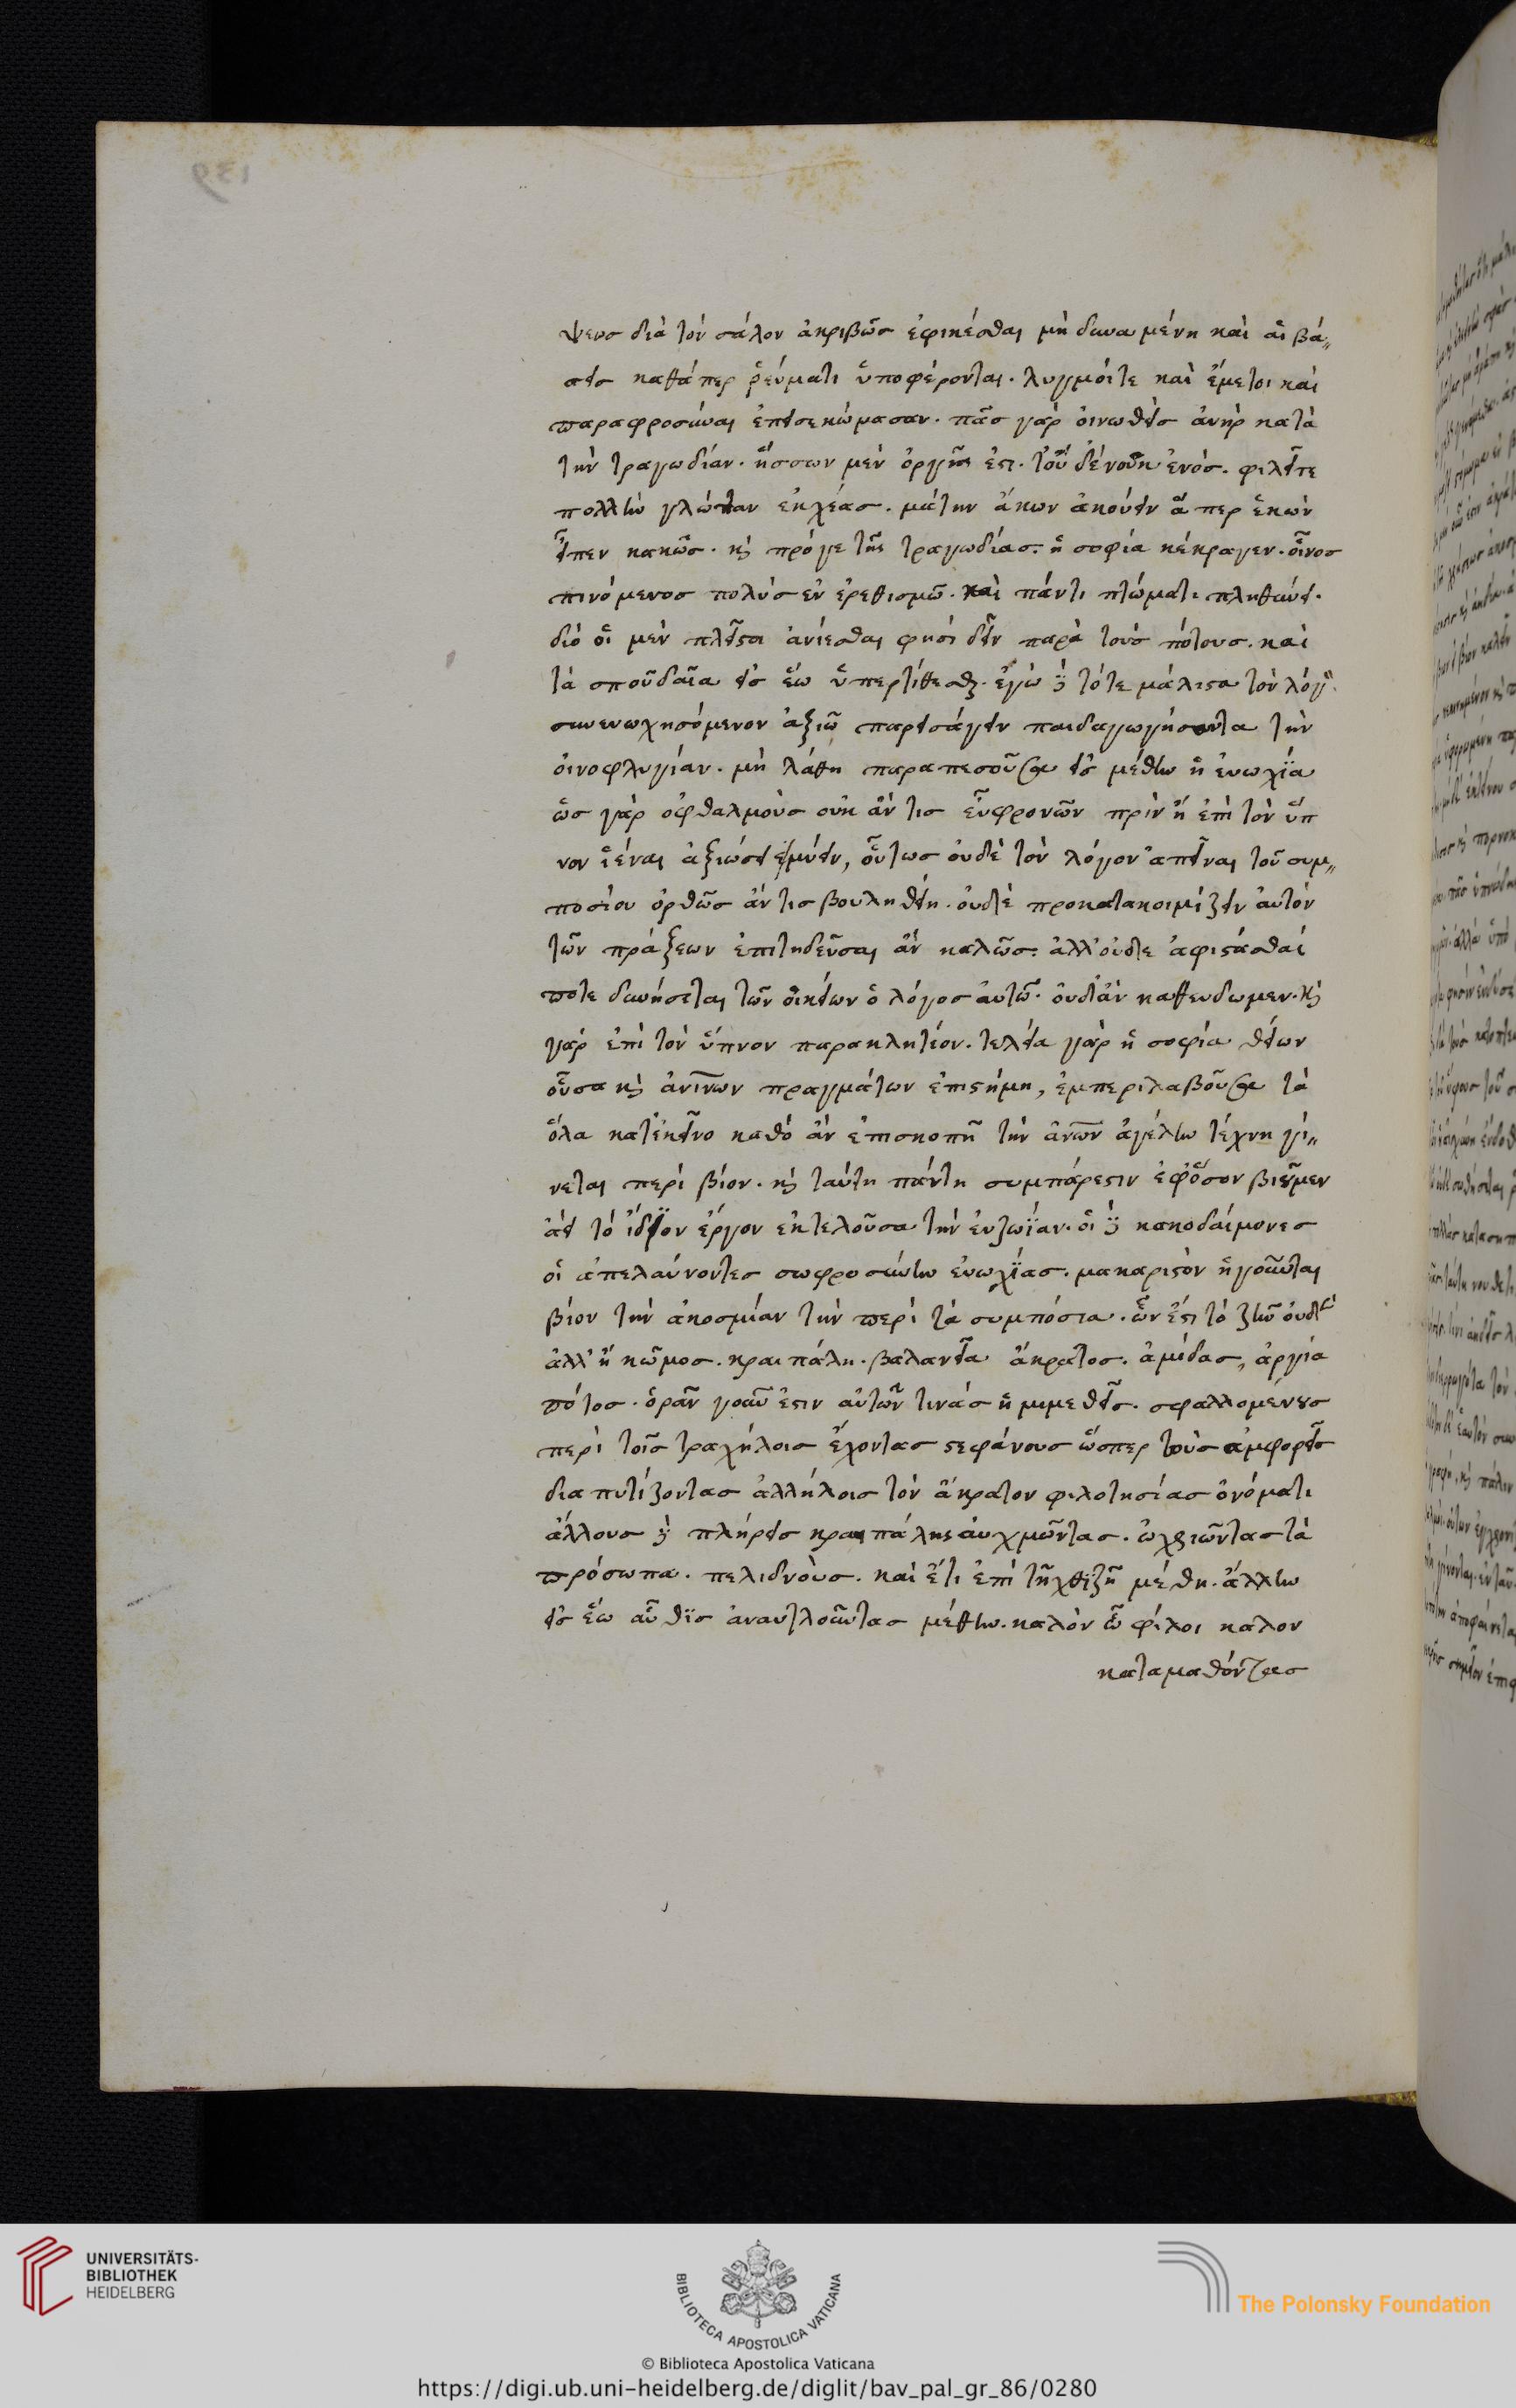 139
ψεως διὰ τὸν σάλον ἀκριβῶς ἐφικέσθαι μὴ δυναμένη καὶ αἱ βά„
σεις καθάπερ ῥεύματι ὑποφέρονται. λυγμοί τε καὶ ἔμετοι καὶ
παραφροσύναι ἐπεισεκώμασαν. πᾶς γὰρ οἰνωθεὶς ἀνὴρ κατὰ
τὴν τραγωδίαν. ἥσσων μὲν ὀργῆς ἐστι. τοῦ δὲ νοῦ κενός. φιλεῖ τε
πολλὴν γλῶτταν ἐκχέας. μάτην ἄκων ἀκούειν ἅ περ ἑκὼν
εἶπεν κακῶς. κ̀ πρό γε τῆς τραγωδίας· ἡ σοφία κέκραγεν. οἶνος
πινόμενος πολύς ἐν ἐρεθισμῶ. καὶ πάντι πτώματι πληθύνει.
διὸ οἱ μὲν πλεῖστοι ἀνίεσθαι φησὶ δεῖν παρὰ τοὺς πότους. καὶ
τὰ σπουδαῖα εἰς ἕω ὑπερτίθεσθαι. ἐγὼ δὲ τότε μάλιστα τὸν λόγον
συνευωχησόμενον ἀξιῶ παρεισάγειν παιδαγωγήσοντα τὴν
οἰνοφλυγίαν. μὴ λάθη παραπεσοῦσα εἰς μέθην ἡ εὐωχία
ὡς γὰρ ὀφθαλμοὺς οὐκ ἄν τις εὐφρονῶν πρὶν ἢ ἐπὶ τὸν ὕπ
νον ἰέναι ἀξιώσει μύειν, οὕτως οὐδὲ τὸν λόγον ἀπεῖναι τοῦ συμ„
ποσίου ὀρθῶς ἄν τις βουληθείη. οὐδὲ προκατακοιμίζειν αὐτὸν
τῶν πράξεων ἐπιτηδεῦσαι ἂν καλῶς· ἀλλ' οὐδε ἀφιστάσθαί
ποτε δυνήσεται τῶν οἰκείων ὁ λόγος αὐτῶ. οὐδ' ἂν καθευδωμεν. κ̀
γὰρ ἐπὶ τὸν ὕπνον παρακλητέον. τελεία γὰρ ἡ σοφία θείων
οὖσα κ̀ ἀνίνων πραγμάτων ἐπιστήμη, ἐμπεριλαβοῦσα τὰ
ὅλα κατ' ἐκεῖνο καθὸ ἂν ἐπισκοπῆ τὴν ἀνῶν ἀγέλην τέχνη γί„
νεται περὶ βίον. κ̀ ταύτη πάντη συμπάρεστιν ἐφ' ὅσον βιοῦμεν
ἀεὶ τὸ ἴδιον ἔργον ἐκτελοῦσα τὴν εὐζωΐαν. οἱ δὲ κακοδαίμονες
οἱ ἀπελαύνοντες σωφροσύνην εὐωχΐας. μακαριστὸν ἡγοῦνται
βίον τὴν ἀκοσμίαν τὴν περὶ τὰ συμπόσια. ὧν ἐστι τὸ ζῆν οὐδὲν
ἀλλ' ἢ κῶμος. κραιπάλη. βαλανεῖα ἄκρατος. ἀμίδας, ἀργία
πότος. ὁρᾶν γοῦν ἐστιν αὐτῶν τινὰς ἡμιμεθεῖς. σφαλλομενους
περὶ τοῖς τραχήλοις ἔχοντας στεφάνους ὥσπερ τοὺς ἀμφορεῖς
διαπυτίζοντας ἀλλήλοις τὸν ἄκρατον φιλοτησίας ὀνόματι
ἄλλους δὲ πλήρεις κραιπάλης αὐχμῶντας. ὠχριῶντας τὰ
πρόσωπα. πελιδνοὺς. καὶ ἔτι ἐπὶ τῆ χθιζῆ μέθη. ἄλλην
εἰς ἕω αὖθϊς ἀναντλοῦντας μέθην. καλὸν ὦ φίλοι καλον
καταμαθόντας
UNIVERSITÄTS-
BIBLIOTHEK
HEIDELBERG
BIBLIOTECA APOSTOLICA VATICANA
The Polonsky Foundation
© Biblioteca Apostolica Vaticana
https://digi.ub.uni-heidelberg.de/diglit/bav_pal_gr_86/0280